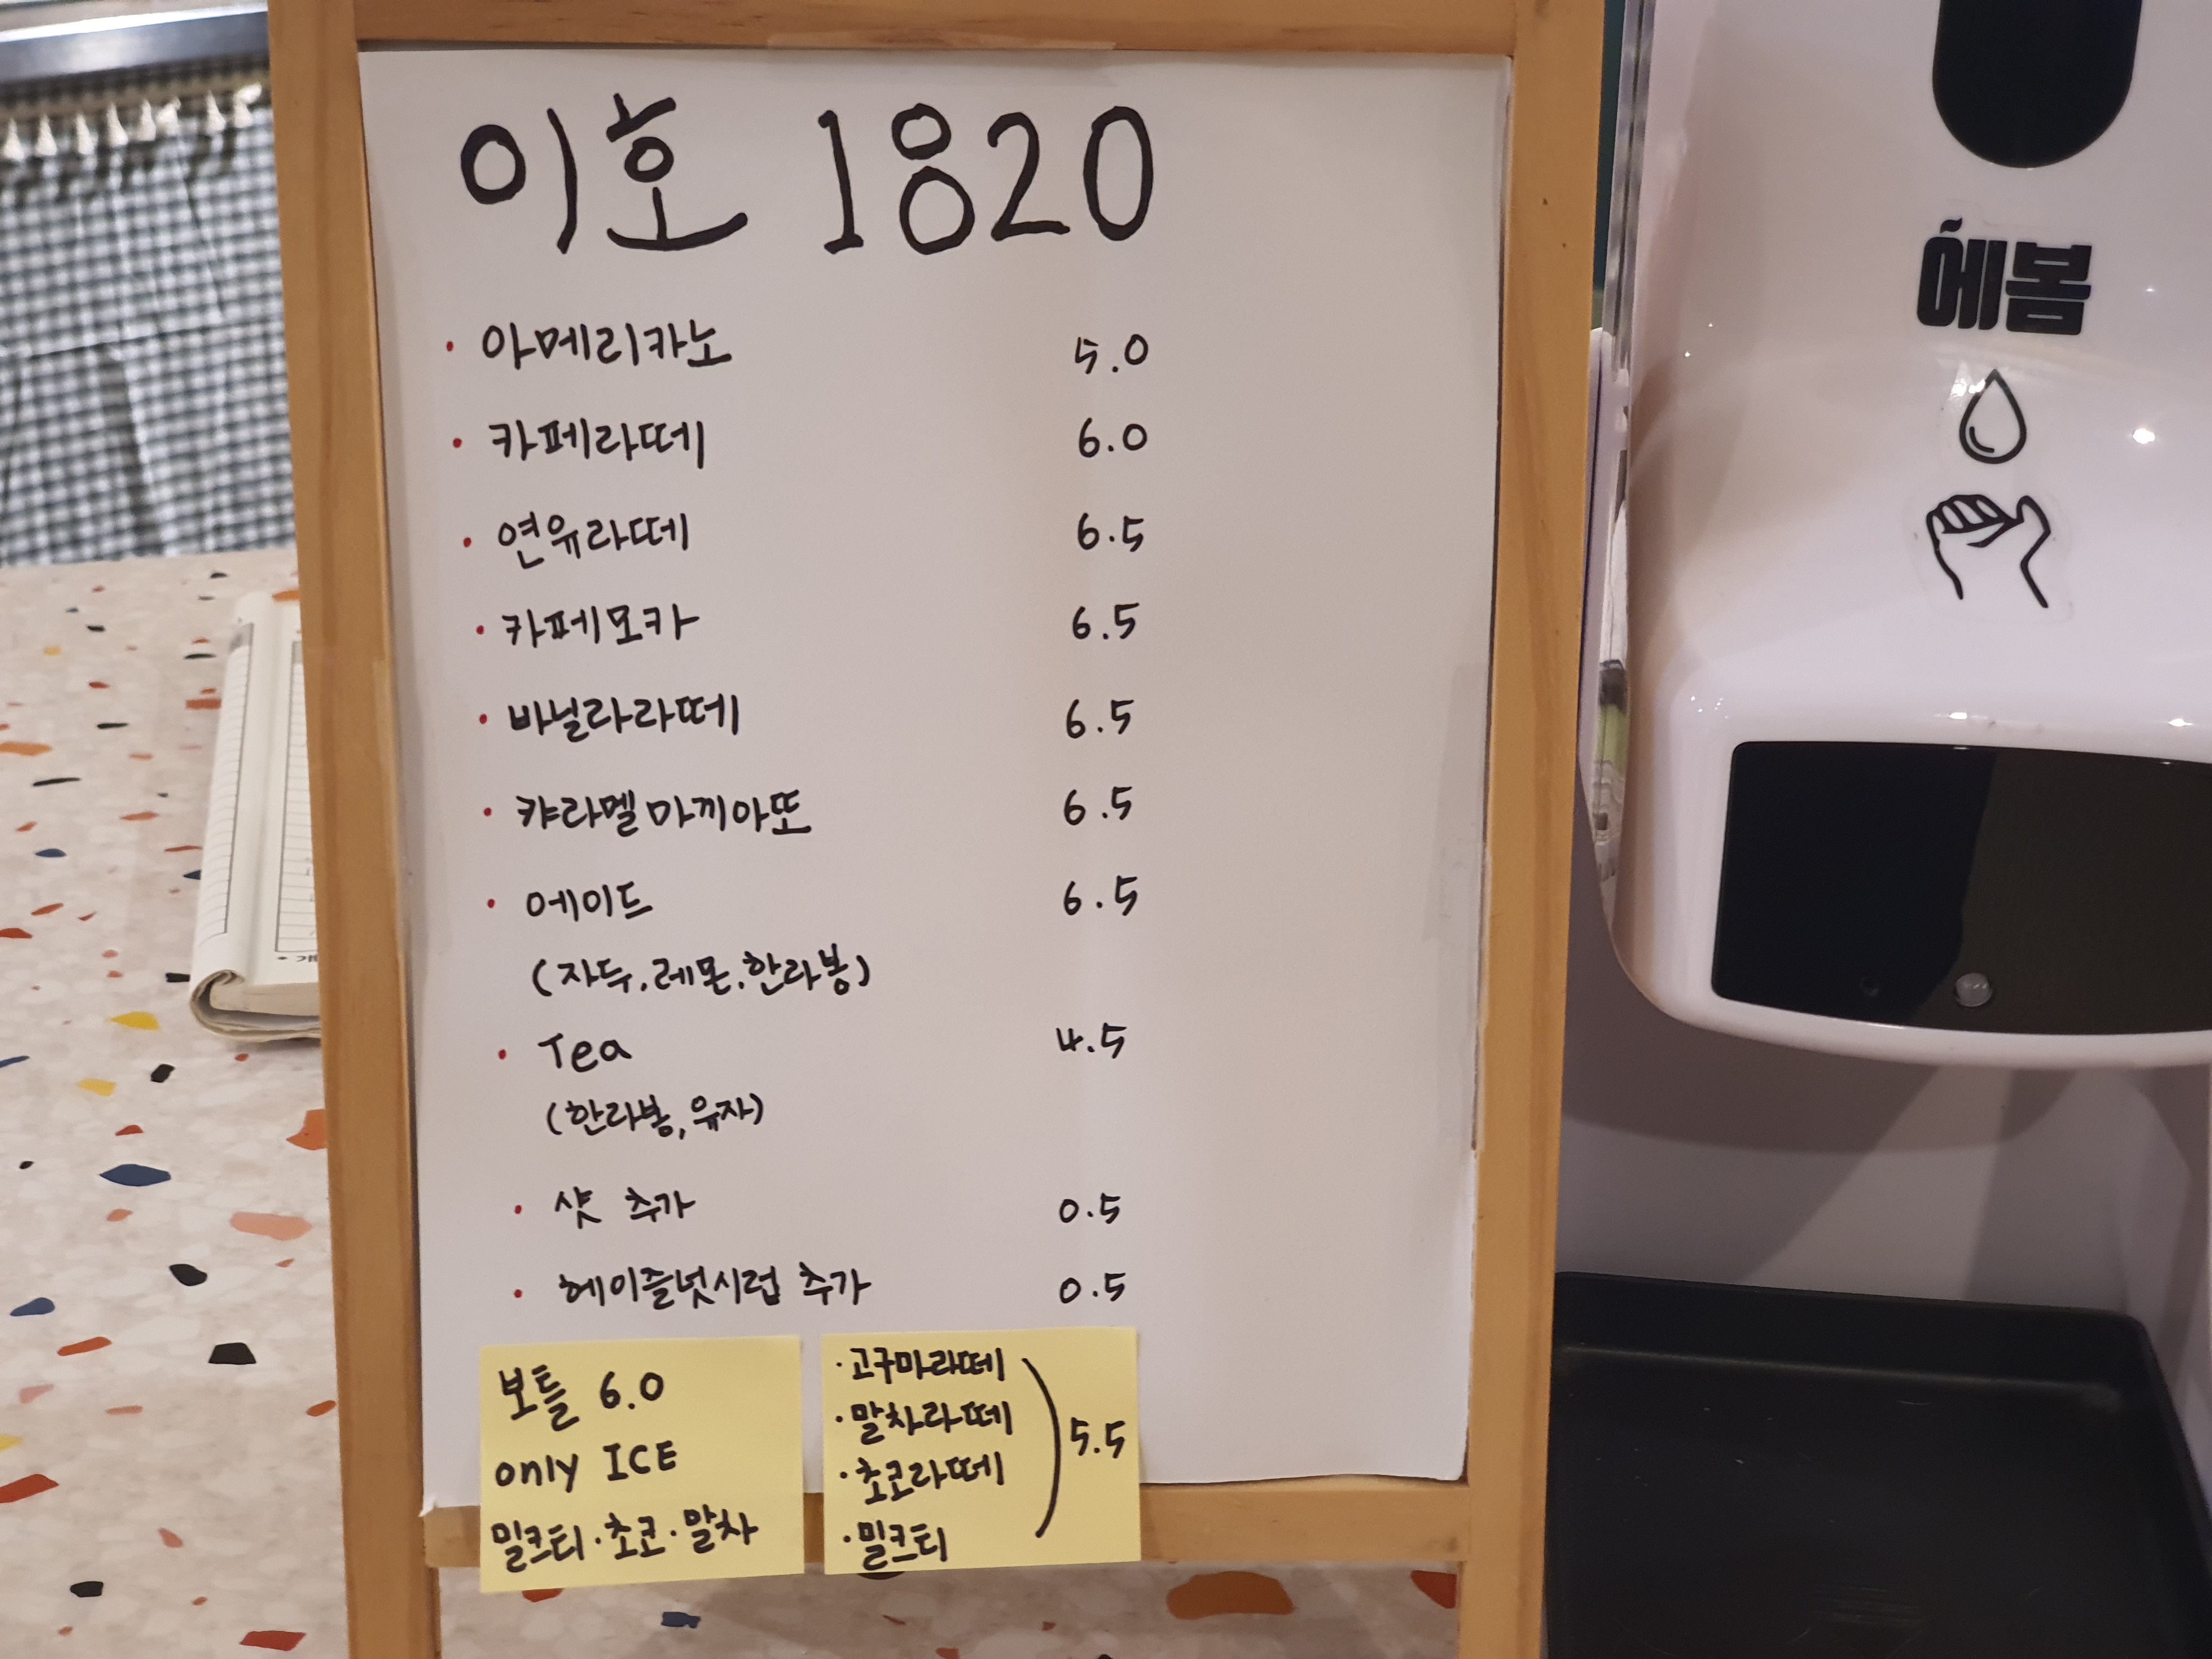 이호 1820
· 아메리카노 5.0
· 카페라떼 6.0
· 연유라떼 6.5
· 카페모카 6.5
· 바닐라라떼 6.5
· 캬라멜마끼아또 6.5
· 에이드 6.5
(자두.레몬.한라봉)
· Tea 4.5
(한라봉, 유자)
· 샷 추가 0.5
· 헤이즐넛시럽 추가 0.5
보틀 6.0
only ICE
밀크티·초코·말차
·고구마라떼
·말차라떼
·초코라떼
·밀크티
5.5
헤봄